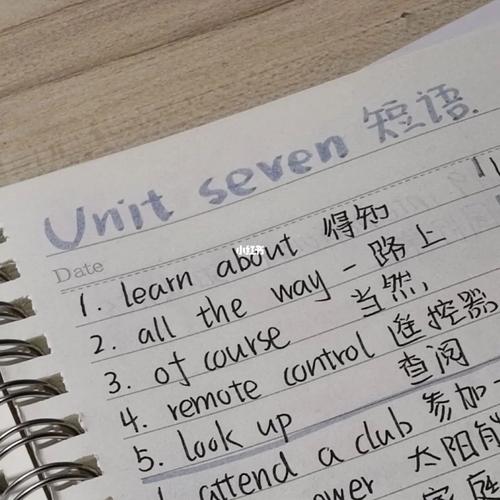 Unit seven 短语
Date
小红书
1. learn about 得知
2. all the way 一路上
3. of course 当然
4. remote control 遥控器
5. look up 查阅
attend a club 参加
太阳能